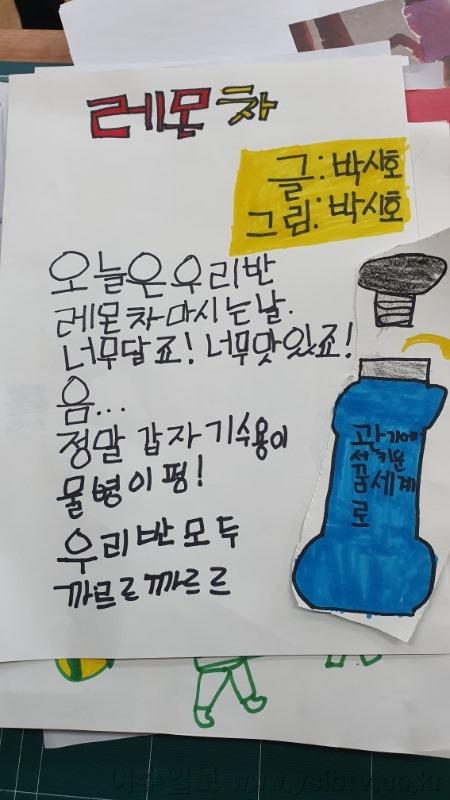 레몬차
글: 박시호
그림: 박시호
오늘은 우리반
레몬차 마시는날.
너무달죠! 너무맛있죠!
음...
정말 갑자기 수용이
물병이 펑!
우리반모두
까르르까르르
관기에
서 키운
꿈 세계
로
여수일보 www.ysibtv.co.kr